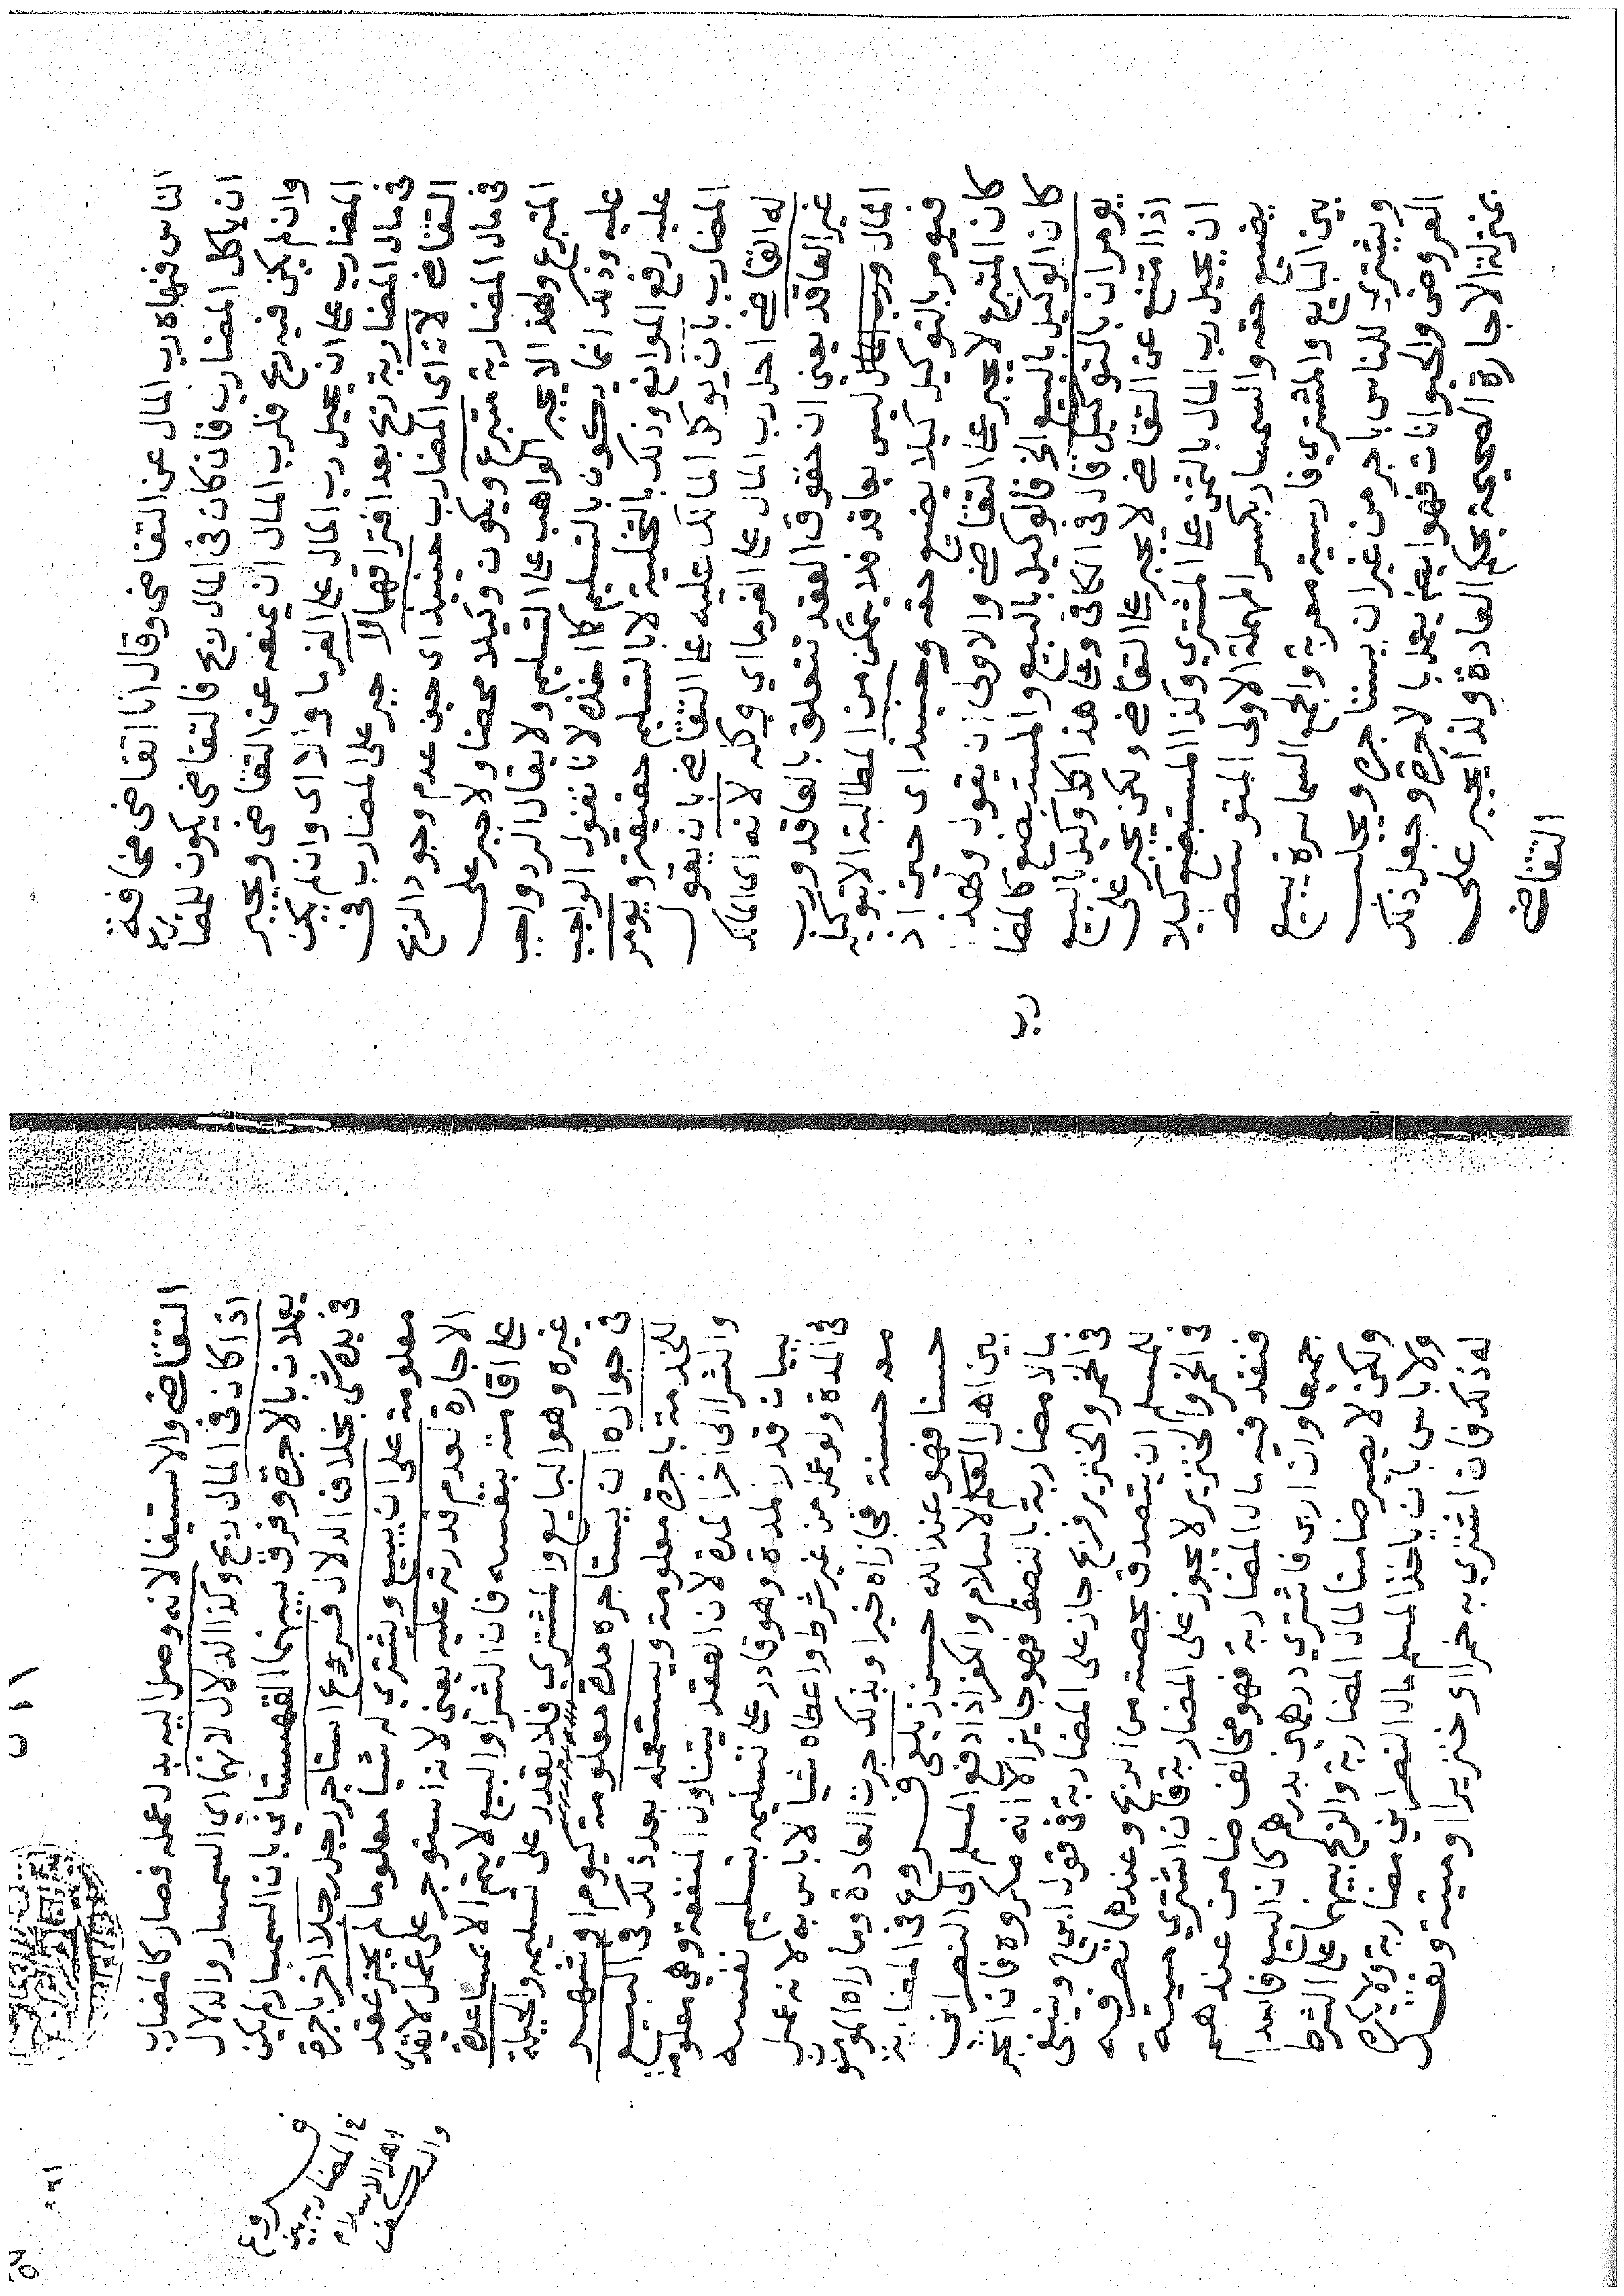 الناس فنهاه رب المال عن التقاضي وقال انا اتقاضى مخافة
ان ياكل المضارب فان كان في المال ربح فالتقاضي يكون للمضارب
وان لم يكن فيه ربح فلرب المال ان يمنعه عن التقاضي ويجبر
المضارب على ان يحيل رب المال على الغرما والا اي وان لم يكن
في مال المضاربة ربح بعد افتراقهما لا جبر على المضارب في
التقاضي لانه اي المضارب حينئذ اي حين عدم وجود الربح
في مال المضاربة متبرع ويكون وكيلا محضا ولا جبر على
المتبرع ولهذا لا يجبر الواهب على التسليم ولا يقال الرد واجب
عليه وذلك انما يكون بالتسليم كما اخذه لانا نقول الواجب
عليه رفع الموانع وذلك بالتخلية لا بالتسليم حقيقة ويومر
المضارب بان يوكل المالك عليه على التقاضي بان يقول
له القاضي احل رب المال على الغرما اي وكله لانه اي المالك
غير العاقد يعني ان حقوق العقد تتعلق بالعاقد ورب
المال ليس بعاقد فلا يتمكن من المطالبة الا بتوكيله
فيومر بالتوكيل كيلا يضيع حقه وحينئذ اي حين اذ
كان المتبرع لا يجبر على التقاضي والاولى ان يقول ولهذا
كان الوكيل بالبيع الخ فالوكيل بالبيع والمستبضع كالمضارب
يومران بالتوكيل قال في الكافي وعلى هذا كل وكيل بالبيع
اذا امتنع عن التقاضي لا يجبر على التقاضي ولكن يجبر على
ان يحيل رب المال بالثمن على المشتري وكذا المستبضع كيلا
يضيع حقه والسمسار بكسر المهملة الاولى المتوسط
بين البايع والمشتري فارسية معربة والجمع السماسرة يبيع
ويشتري للناس باجر من غير ان يستاجره ويجلب
العروض والحيوانات فهو ايضا يعمل بالاجرة وجعل ذلك
بمنزلة الاجارة الصحيحة بحكم العادة ولذا يجبر على
التقاضي
رب
التقاضي والاستيفا لانه وصل اليه بدل عمله فصار كالمضارب
اذا كان في المال ربح وكذا الدلال لانهما اي السمسار والدلال
يعملان بالاجرة وفرق بينهما القهستاني بان السمسار لم يكن
في يده شي بخلاف الدلال فروع استاجر رجل رجلا اخر باجرة
معلومة على ان يبيع ويشتري له شيا معلوما لم يجز عقد
الاجارة لعدم قدرته عليه يعني لانه استوجر على عمل لا يقدر
على اقامته بنفسه فان الشرا والبيع لا يتم الا بمساعدة
غيره وهو البايع والمشتري فلا يقدر على تسليمه والحيلة
في جوازه ان يستاجره مدة معلومة كيوم او شهر
للخدمة باجرة معلومة ويستعمله بعد ذلك في البيع
والشرا الى اخر المدة لان العقد يتناول المنفعة وهي معلومة
ببيان قدر المدة وهو قادر على تسليمه بتسليم نفسه
في المدة ولو عمل من غير شرط واعطاه شيا لا باس به لانه عمل
معه حسنة فجازاه خيرا وبذلك جرت العادة وما راه المومنون
حسنا فهو عند الله حسن زيلعي فروع في المضاربة
بين اهل الاسلام والكفر اذا دفع المسلم الى النصراني
مالا مضاربة بالنصف فهو جايز الا انه مكروه فان اتجر
في الخمر والخنزير فربح جاز على المضاربة في قول ابي ح وينبغي
للمسلم ان يتصدق بحصته من الربح وعندهما تصرفه
في الخمر والخنزير لا يجوز على المضاربة فان اشترى ميتة
فنقد فيه مال المضاربة فهو مخالف ضامن عندهم
جميعا وان اربى فاشترى درهمين بدرهم كان البيع فاسدا
ولكن لا يصير ضامنا لمال المضاربة والربح بينهما على الشرط
ولا باس بان ياخذ المسلم مال النصراني مضاربة ولا يكره
له ذلك فان اشترى به خمرا او خنزيرا او ميتة ونقد
فروع
في المضاربة بين
اهل الاسلام
والكفر